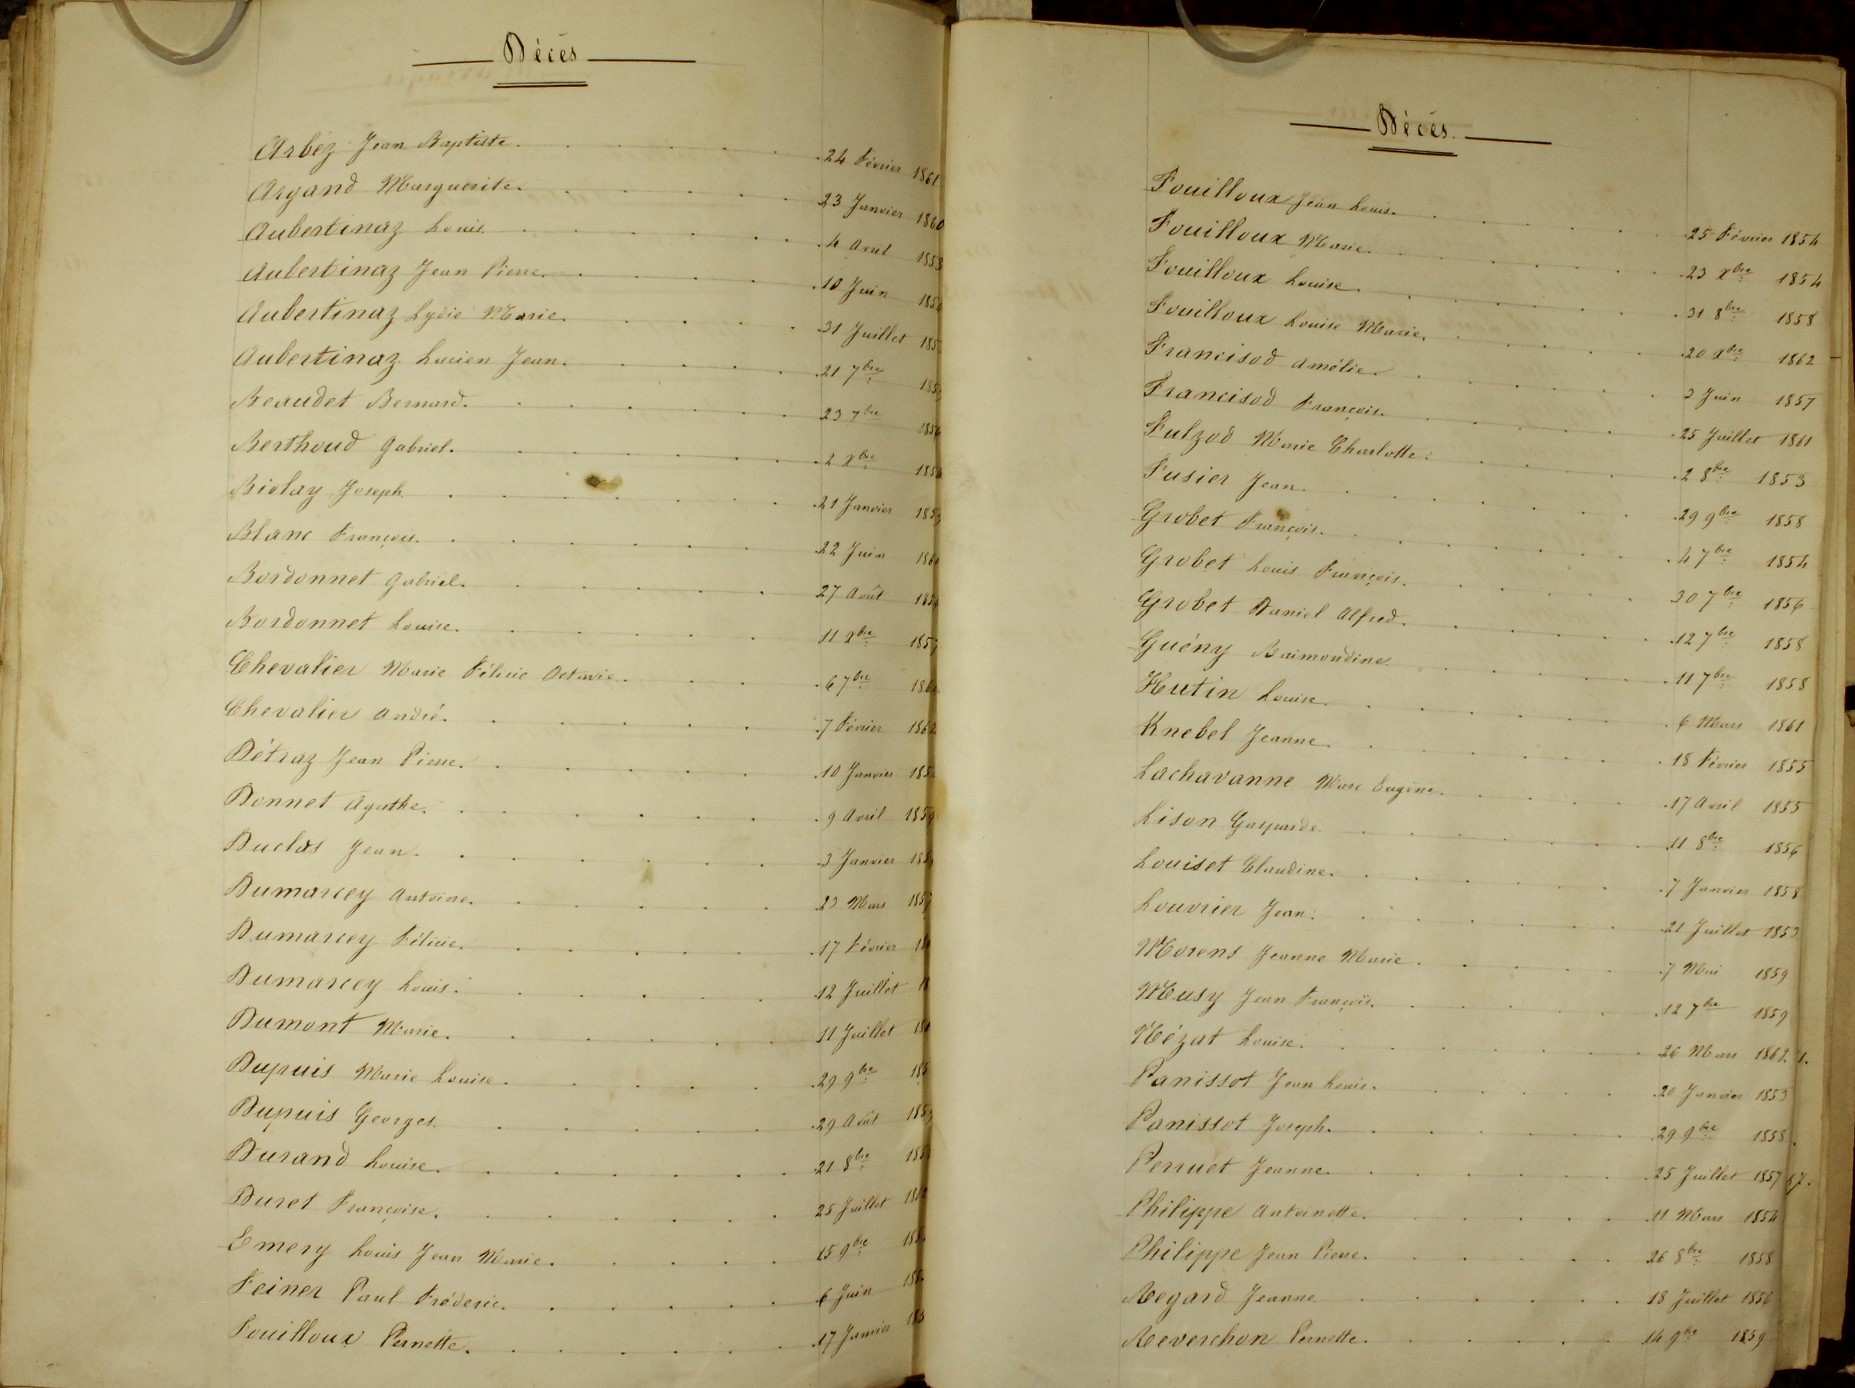 Décès
Arbez Jean Baptiste. 24 Février 1861
Argand Marguerite. 23 Janvier 1860
Aubertinaz Louis. 4 Avril 1858
Aubertinaz Jean Pierre. 10 Juin
Aubertinaz Lydie Marie. 31 Juillet
Aubertinaz Lucien Jean. 21 7bre
Beaudet Bernard. 23 7bre
Berthoud Gabriel. 2 Xbre
Biolay Joseph 21 Janvier
Blanc François. 22 Juin
Bordonnet Gabriel. 27 Août
Bordonnet Louise. 11 Xbre
Chevalier Marie Félicie Octavie. 6 7bre
Chevalier André. 7 Février 1862
Détraz Jean Pierre. 10 Janvier
Donnet Agathe. 9 Avril 1859
Duclos Jean. 3 Janvier
Dumarcey Antoine. 23 Mars
Dumarcey Félicie. 17 Février
Dumarcey Louis. 12 Juillet
Dumont Marie. 11 Juillet
Dupuis Marie Louise. 29 9bre
Dupuis Georges. 29 Août
Durand Louise. 21 8bre
Duret Françoise. 25 Juillet
Emery Louis Jean Marie. 15 9bre
Feiner Paul Fréderic. 6 Juin
Fouilloux Pernette. 17 Janvier
Décès.
Fouilloux Jean Louis. 25 Février 1854
Fouilloux Marie. 23 Xbre 1854
Fouilloux Louise. 31 8bre 1858
Fouilloux Louise Marie. 20 Xbre 1862
Francisod Amélie. 2 Juin 1857
Francisod François. 25 Juillet 1861
Fulzod Marie Charlotte. 2 8bre 1853
Fusier Jean. 29 9bre 1858
Grobet François. 4 7bre 1854
Grobet Louis François. 30 7bre 1856
Grobet Daniel Alfred. 12 7bre 1858
Guény Raimondine. 11 7bre 1858
Hutin Louise. 6 Mars 1861
Knebel Jeanne. 18 Février 1855
Lachavanne Marc Eugène. 17 Avril 1855
Lison Gasparde 11 8bre 1856
Louiset Claudine. 7 Janvier 1858
Louvrier Jean. 21 Juillet 1853
Morens Jeanne Marie. 7 Mai 1859
Musy Jean François. 12 7bre 1859
Nézat Louise. 26 Mars 1862
Panissot Jean Louis. 20 Janvier 1853
Panissot Joseph. 29 9bre 1858
Perruet Jeanne. 25 Juillet 1857
Philippe Antoinette. 11 Mars 1854
Philippe Jean Pierre. 26 8bre 1858
Regard Jeanne 18 Juillet 1856
Reverchon Pernette. 14 9bre 1859